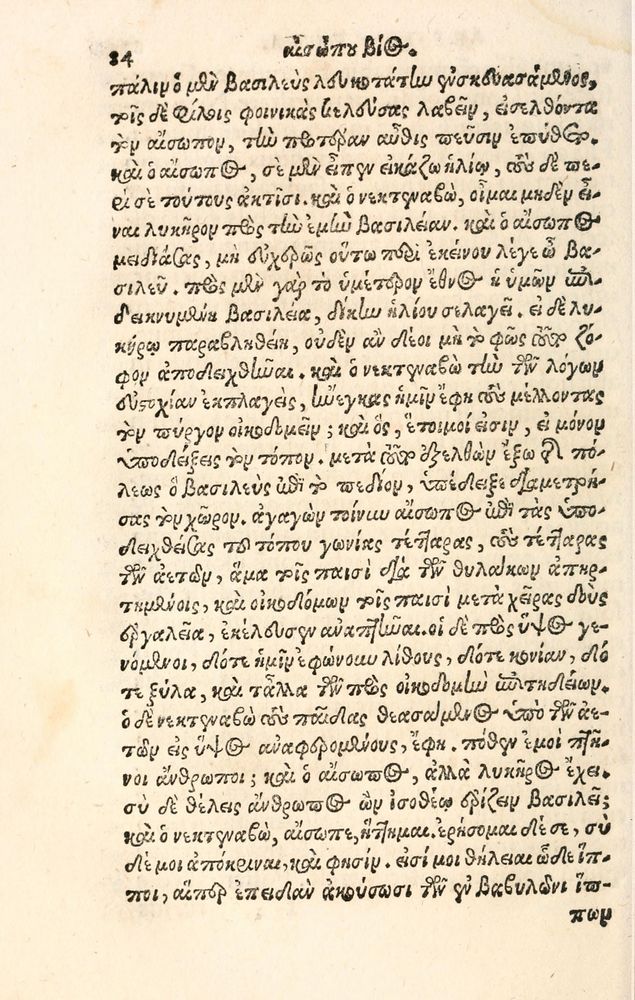 84 αἰσώπου βίος.
πάλιν ὁ μὲν βασιλεὺς λευκοτάτην ἐνσκευασάμενος,
τοῖς δὲ φίλοις φοινικὰς κελεύσας λαβεῖν, εἰσελθόντα
τὸν αἴσωπον, τὴν προτέραν αὖθις πεῦσιν ἐπύθετο.
καὶ ὁ αἴσωπος, σὲ μὲν εἶπεν εἰκάζω ἡλίῳ, τοὺς δὲ πε-
ρὶ σὲ τούτους ἀκτῖσι. καὶ ὁ νεκτεναβὼ, οἶμαι μηδὲν εἶ-
ναι λυκῆρον πρὸς τὴν ἐμὴν βασιλείαν. καὶ ὁ αἴσωπος
μειδιάσας, μὴ εὐχερῶς οὕτω περὶ ἐκείνου λέγε ὦ βα-
σιλεῦ. πρὸς μὲν γὰρ τὸ ὑμέτερον ἔθνος ἡ ὑμῶν ἐπι-
δεικνυμένη βασιλεία, δίκην ἡλίου σελαγεῖ. εἰ δὲ λυ-
κήρῳ παραβληθείη, οὐδὲν ἂν δέοι μὴ τὸ φῶς τοῦτο ζό-
φον ἀποδειχθῆναι. καὶ ὁ νεκτεναβὼ τὴν τῶν λόγων
εὐστοχίαν ἐκπλαγεὶς, ἤνεγκας ἡμῖν ἔφη τοὺς μέλλοντας
τὸν πύργον οἰκοδομεῖν; καὶ ὃς, ἕτοιμοί εἰσιν, εἰ μόνον
ὑποδείξεις τὸν τόπον. μετὰ τοῦτο ἐξελθὼν ἔξω τῆς πό-
λεως ὁ βασιλεὺς ἐπὶ τὸ πεδίον, ὑπέδειξε διαμετρή-
σας τὸν χῶρον. ἀγαγὼν τοίνυν αἴσωπος ἐπὶ τὰς ὑπο-
δειχθείσας τοῦ τόπου γωνίας τέτταρας, τοὺς τέτταρας
τῶν ἀετῶν, ἅμα τοῖς παισὶ διὰ τῶν θυλάκων ἀπηρ-
τημένοις, καὶ οἰκοδόμων τοῖς παισὶ μετὰ χεῖρας δοὺς
ἐργαλεῖα, ἐκέλευσεν ἀναπτῆναι. οἱ δὲ πρὸς ὕψος γε-
νόμενοι, δότε ἡμῖν ἐφώνουν λίθους, δότε κονίαν, δό
τε ξύλα, καὶ τἆλλα τῶν πρὸς οἰκοδομὴν ἐπιτηδείων.
ὁ δὲ νεκτεναβὼ τοὺς παῖδας θεασάμενος ὑπὸ τῶν ἀε-
τῶν εἰς ὕψος ἀναφερομένους, ἔφη. πόθεν ἐμοὶ πτη-
νοὶ ἄνθρωποι; καὶ ὁ αἴσωπος, ἀλλὰ λυκῆρος ἔχει.
σὺ δὲ θέλεις ἄνθρωπος ὢν ἰσοθέῳ ἐρίζειν βασιλεῖ;
καὶ ὁ νεκτεναβὼ, αἴσωπε, ἥττημαι. ἐρήσομαι δέ σε, σὺ
δέ μοι ἀπόκριναι, καὶ φησίν. εἰσί μοι θήλειαι ὧδε ἵπ-
ποι, αἵπερ ἐπειδὰν ἀκούσωσι τῶν ἐν βαβυλῶνι ἵπ-
πων